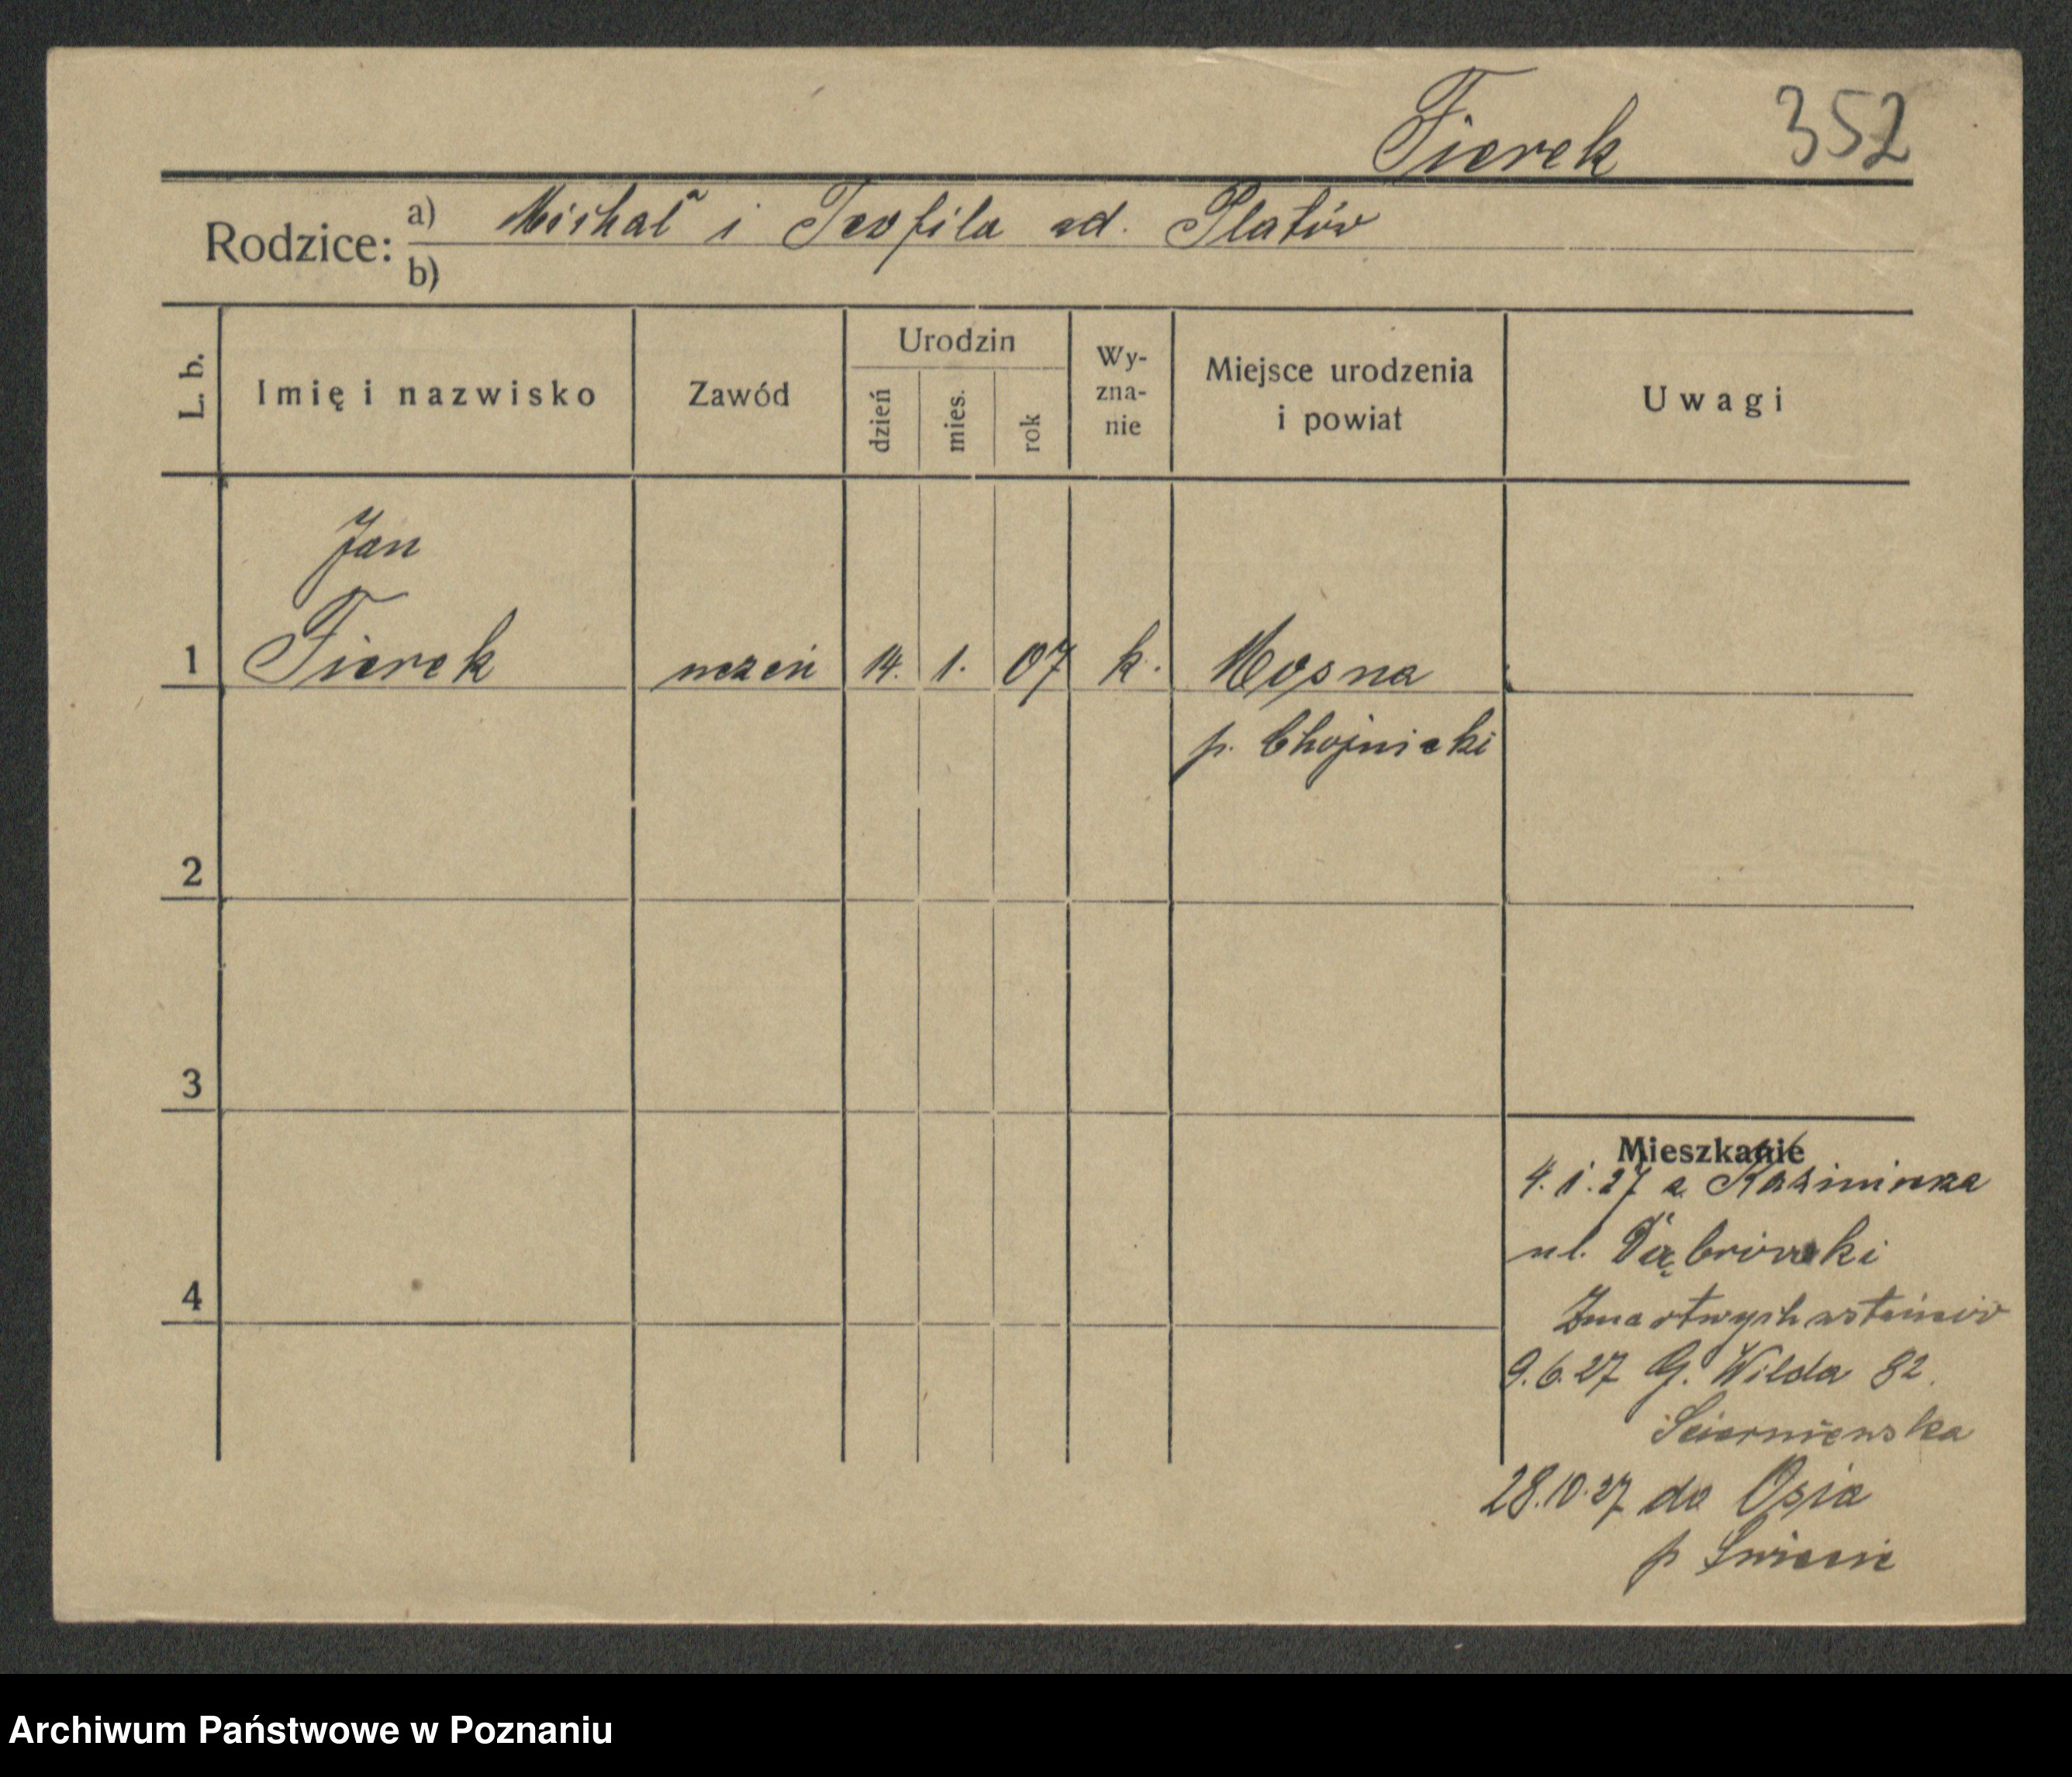 Fierek 352
Rodzice: a) Michał i Teofila od. Platów
b)
L. b. Imię i nazwisko Zawód Urodzin dzień mies. rok Wy-zna-nie Miejsce urodzenia i powiat Uwagi
Jan
1 Fierek uczeń 14. 1. 07 k. Mosna
p. Chojnicki
2
3
Mieszkanie
4.1.27 z Kaźmierza
ul. Dąbrówki
4 Zmartwychwstańców
9.6.27 G. Wilda 82.
28.10.27 do Osia
p Świecie
Archiwum Państwowe w Poznaniu